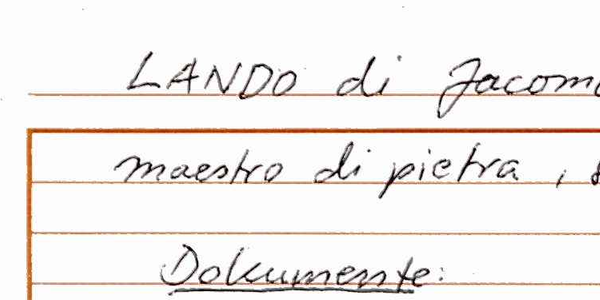 LANDO di Jacomo
maestro di pietra,
Dokumente: